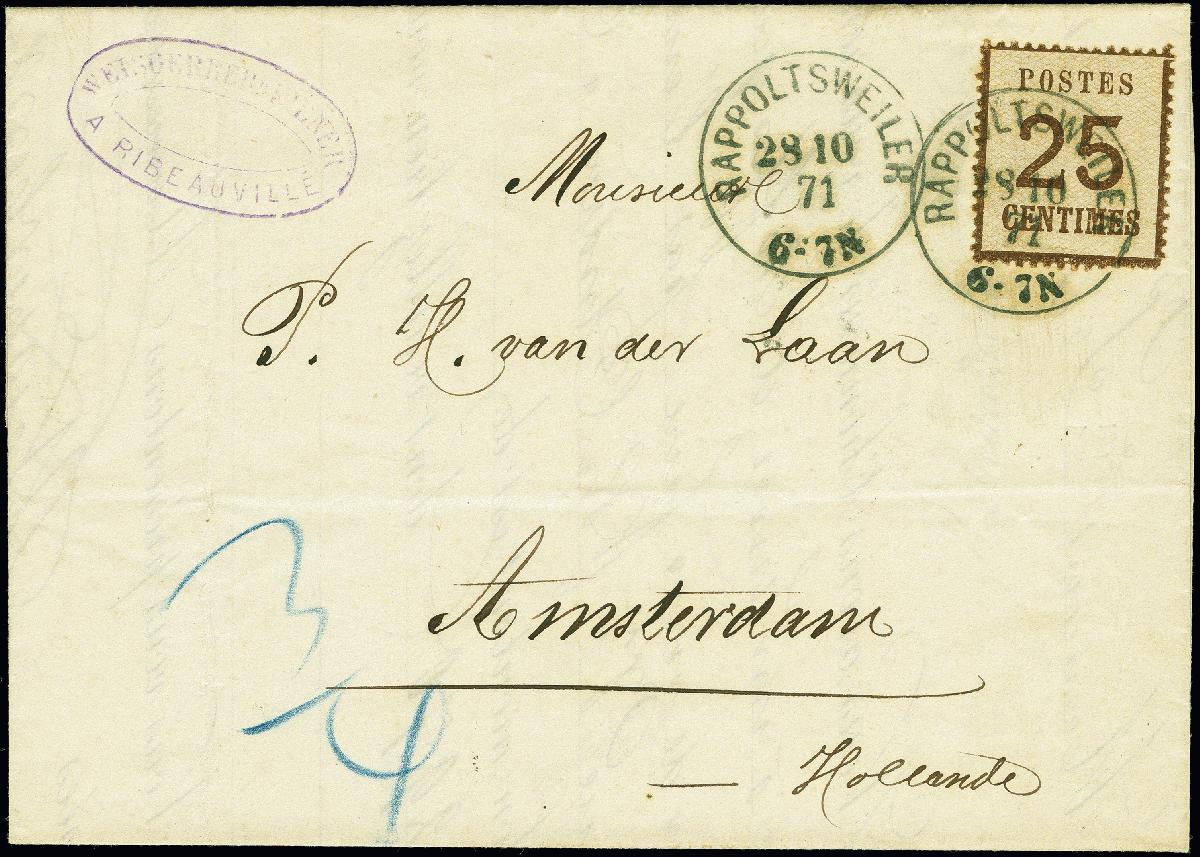 A RIBEAUVILLÉ
RAPPOLTSWEILER
28 10
71
6-7N
POSTES
25
CENTIMES
RAPPOLTSWEILER
28 10
71
6-7N
Monsieur
P. H. van der Laan
Amsterdam
— Hollande